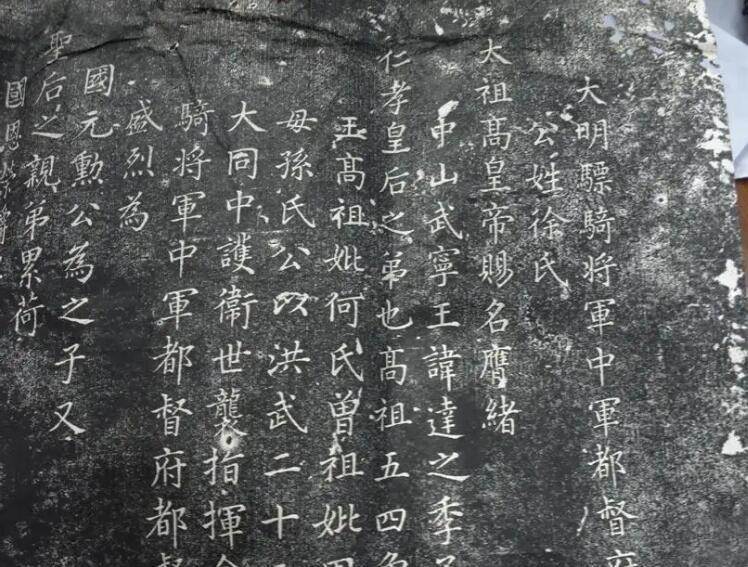 大明驃騎将軍中軍都督府
公姓徐氏
太祖高皇帝賜名膺緒
中山武寧王諱達之季子
仁孝皇后之弟也高祖五四
王高祖妣何氏曾祖妣
母孫氏公以洪武二十
大同中護衛世襲指揮
騎将軍中軍都督府都督
盛烈為
國元勳公為之子又
聖后之親弟累荷
國恩